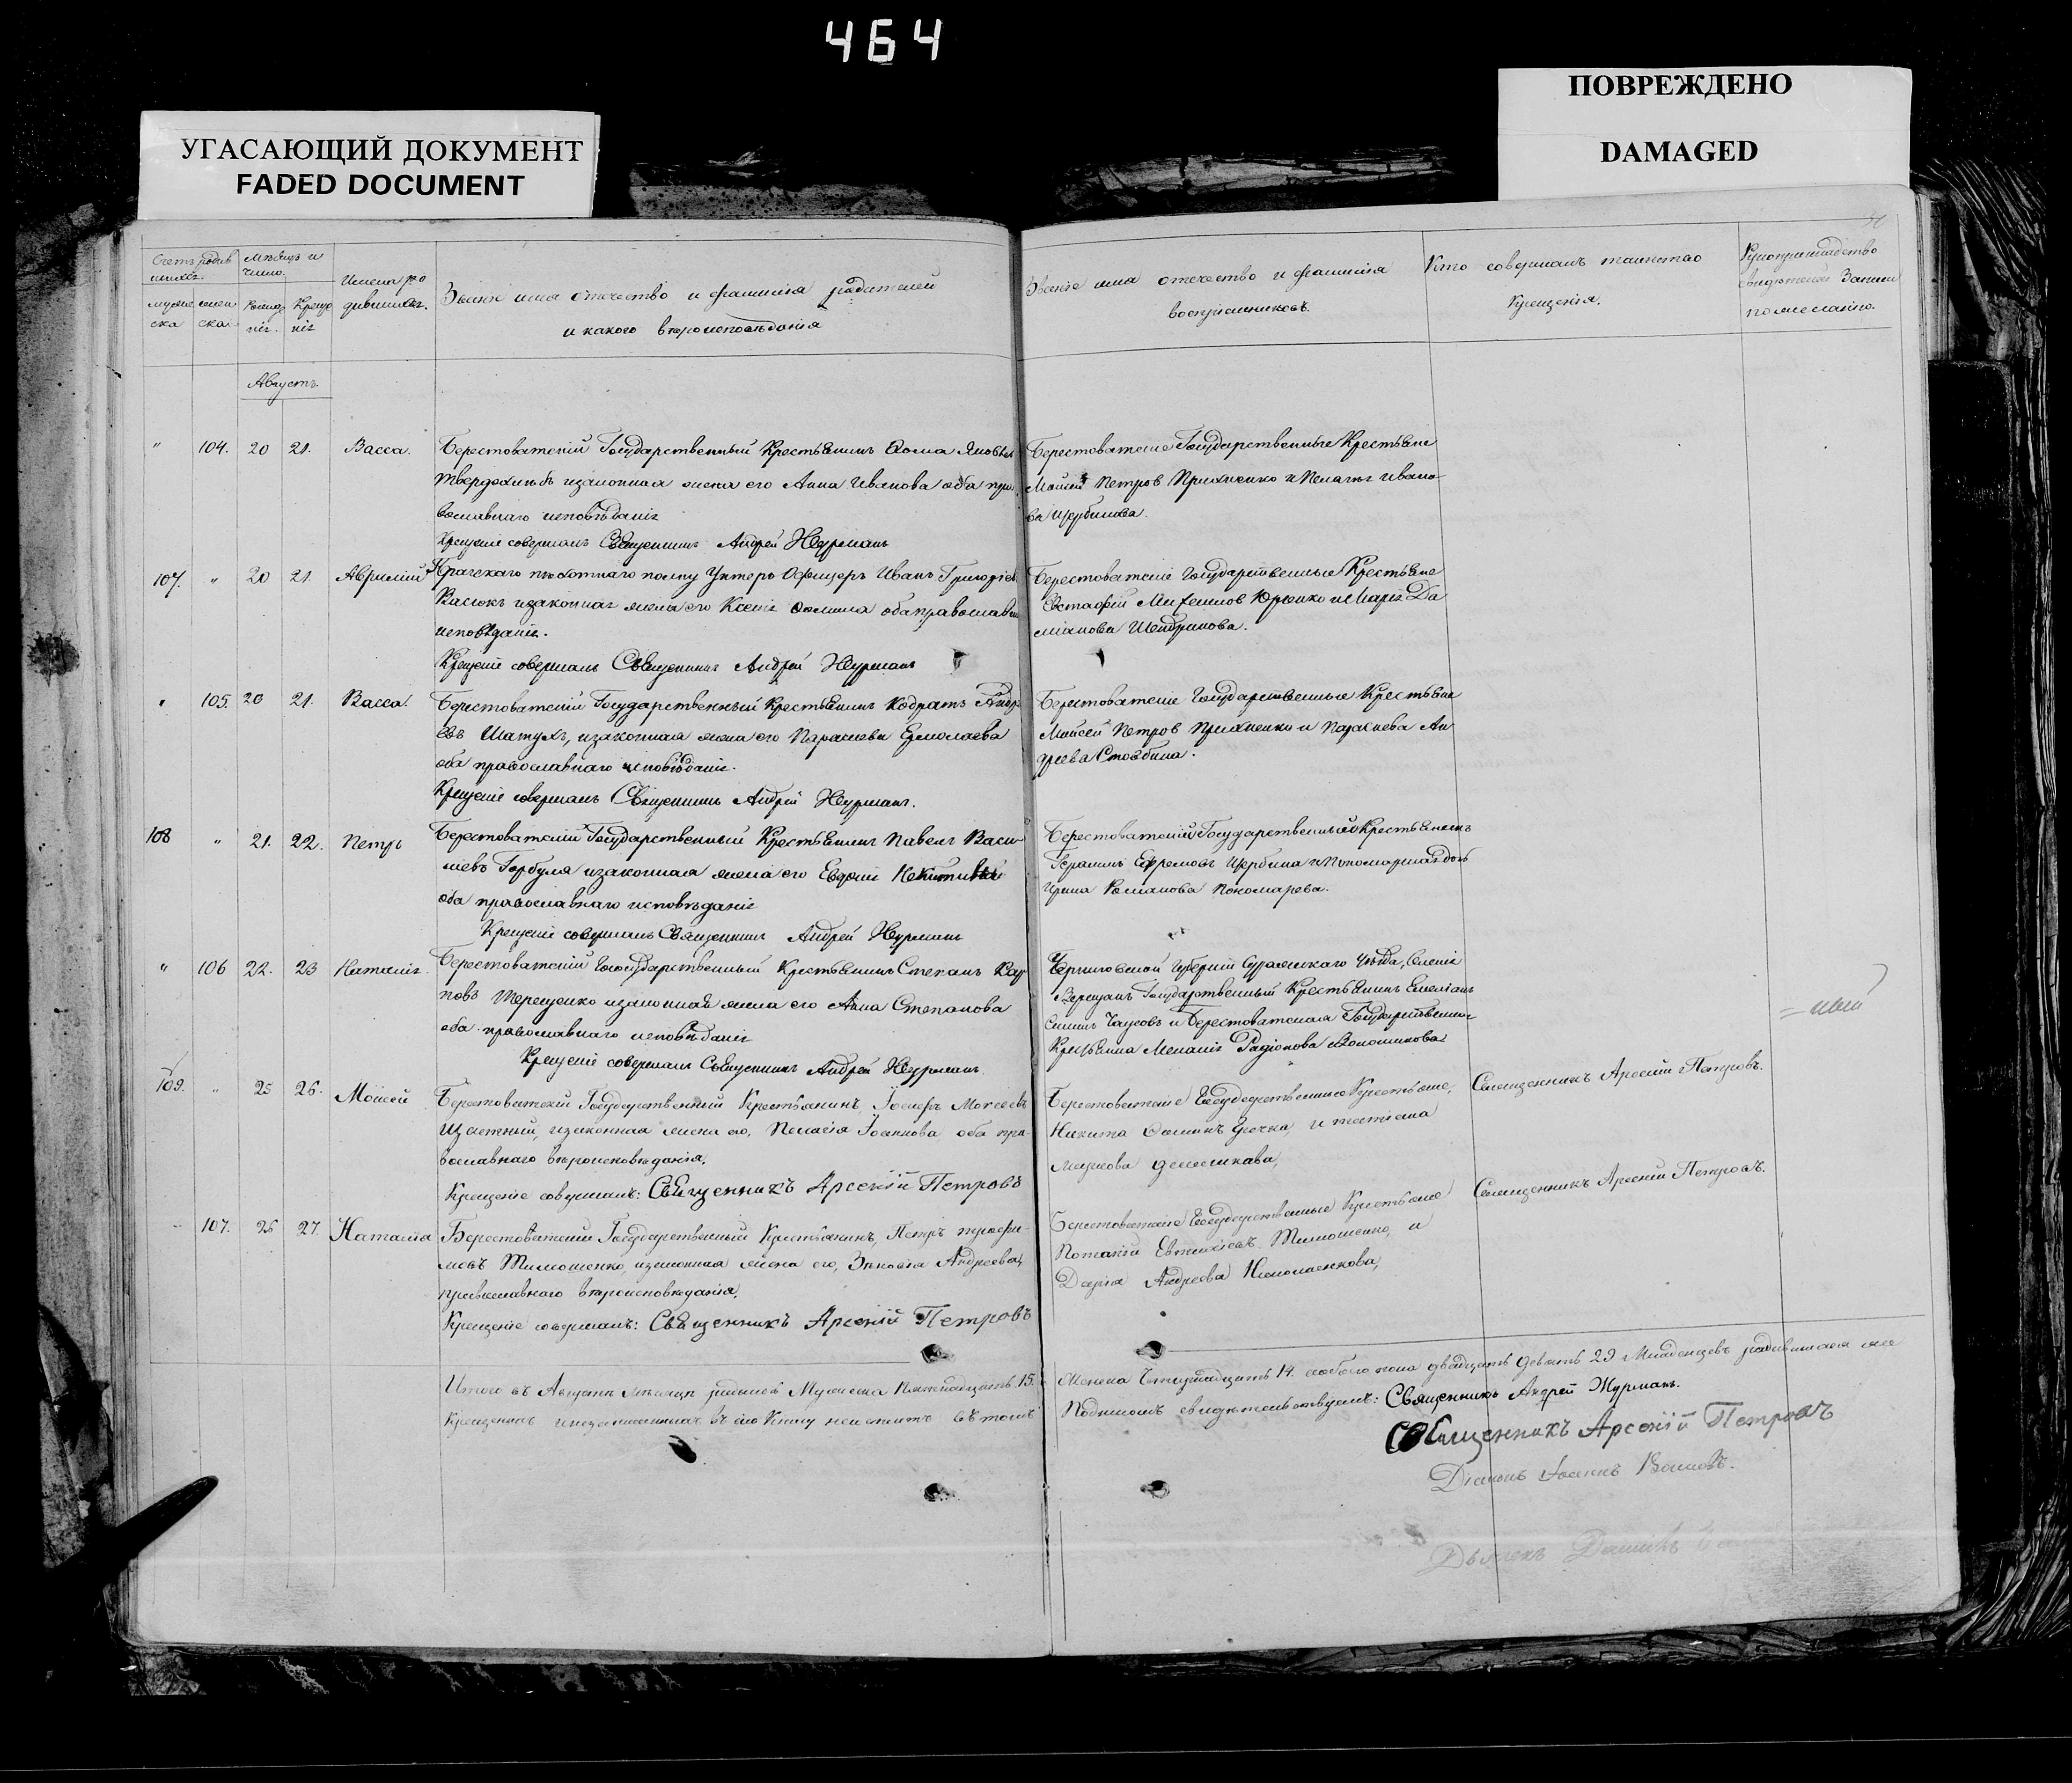 464
УГАСАЮЩИЙ ДОКУМЕНТ
FADED DOCUMENT
ПОВРЕЖДЕНО
DAMAGED
Счетъ родив
шихъ.
Мѣсяцъ и
число.
Имена ро
дившихъ.
Званіе имя отечество и фамилія родителей
и какого вѣроисповѣданія
Званіе имя отечество и фамилія
воспріемниковъ.
Кто совершалъ таинство
Крещенія.
Рукоприкладство
свидѣтелей Записи
по желанію.
муже
ска
жен
ска
Рожде
нія.
Креще
нія
Августъ.
" 104. 20 21. Васса. Берестоватскій Государственный Крестьянинъ Фома Яковлев
Твердохлѣбъ и законная жена его Анна Иванова оба пра
вославнаго исповѣданія
Крещеніе совершалъ Священникъ Андрей Журманъ
Берестоватскіе Государственные Крестьяне
Мойсей Петров Прихненко и Пелагія Ивано
ва Щербинова.
107. " 20 21. Аврилій Прагскаго пѣхотнаго полку Унтеръ Офицеръ Иванъ Григоріев
Васюкъ и законная жена его Ксенія Фомина оба православн
исповѣданія.
Крещеніе совершалъ Священникъ Андрей Журманъ
Берестоватскіе Государственные Крестьяне
Евстафій Михайлов Юрченко и Марія Да
міанова Шендрикова.
" 105. 20 21. Васса. Берестоватскій Государственный Крестьянинъ Кодратъ Андре
евъ Шатухъ, и законная жена его Параскева Ермолаева
оба православнаго исповѣданія.
Крещеніе совершалъ Священникъ Андрей Журманъ.
Берестоватскіе Государственные Крестьяне
Мойсей Петров Прихненко и Параскева Ан
дреева Стовбина.
108 " 21. 22. Петръ Берестоватскій Государственный Крестьянинъ Павелъ Васи
ліевъ Горбуля и законная жена его Евдокія Никитина
оба православнаго исповѣданія
Крещеніе совершалъ Священникъ Андрей Журманъ
Берестоватскій Государственный Крестьянинъ
Герасимъ Ефремовъ Щербина и
Ирина Романова Пономарева.
" 106 22. 23 Наталія. Берестоватскій Государственный Крестьянинъ Степанъ Кар
повъ Терещенко и законная жена его Анна Степанова
оба православнаго исповѣданія
Крещеніе совершалъ Священникъ Андрей Журманъ.
Черниговской Губерніи Суражскаго Уѣзда, Селенія
Государственный Крестьянинъ Емеліанъ
и Берестоватская Государственная
Крестьянка Меланія Радіонова Волошинова
=ный
109. " 25 26. Моисей Берестоватскій Государственный Крестьянинъ, Іосифъ Моисеевъ
Щасный, и законная жена его, Пелагія Іоаннова оба пра
вославнаго вѣроисповѣданія.
Крещеніе совершалъ: Священникъ Арсеній Петровъ
Берестоватскіе Государственные Крестьяне,
Никита Фоминъ и Татіана
Священникъ Арсеній Петровъ.
107. 26 27. Наталія Берестоватскій Государственный Крестьянинъ, Петръ Трофи
мовъ Тимошенко, и законная жена его, Зиновія Андреева,
православнаго вѣроисповѣданія.
Крещеніе совершалъ: Священникъ Арсеній Петровъ
Берестоватскіе Государственные Крестьяне
Потапій Евтихіевъ Тимошенко, и
Дарія Андреева
Священникъ Арсеній Петровъ.
Итого въ Августѣ мѣсяцѣ родилось Мужеска Пятнадцать 15.
Женска Четырнадцать 14. обоего пола двадцать девять 29 Младенцевъ родившихся же
Крещенныхъ и незаписанныхъ въ сію Книгу не имѣется въ томъ
Подписомъ свидѣтельствуемъ: Священникъ Андрей Журманъ.
Священникъ Арсеній Петровъ
Діаконъ Іоаннъ
Дьячекъ Даніилъ